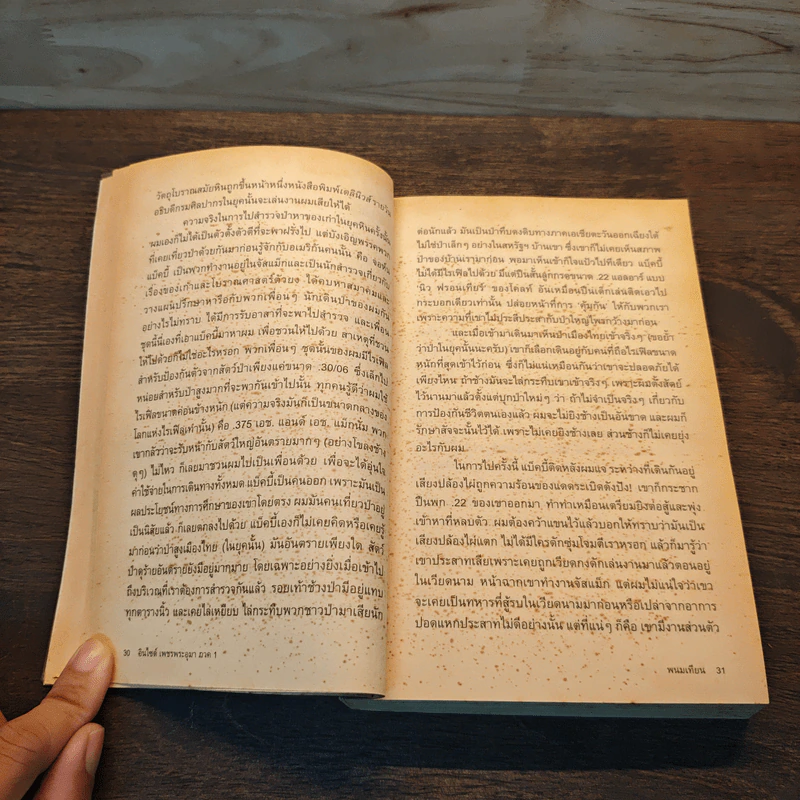 วัตถุโบราณสมัยหินถูกขึ้นหน้าหนึ่งหนังสือพิมพ์เดลินิวส์รายวัน
อธิบดีกรมศิลปากรในยุคนั้นจะเล่นงานผมเสียให้ได้
ความจริงในการไปสำรวจป่าหาของเก่าในยุคหินครั้งนั้น
ผมเองก็ไม่ได้เป็นตัวตั้งตัวตีที่จะพาฝรั่งไป แต่บังเอิญพรรคพวก
ที่เคยเที่ยวป่าด้วยกันมาก่อนรู้จักกับอเมริกันคนนั้น คือ จอห์น
แบ๊คบี้ เป็นพวกทำงานอยู่ในจัสแม๊กและเป็นนักสำรวจเกี่ยวกับ
เรื่องของเก่าและโบราณศาสตร์ด้วยจ ได้คบหาสมาคมและ
วางแผนปรึกษาหารือกับพวกเพื่อนๆ นักเดินป่าของผมกัน
อย่างไรไม่ทราบ ได้มีการรับอาสาที่จะพาไปสำรวจ และเพื่อน
ชุดนี้นี่เองที่เอาแบ๊คบี้มาหาผม เพื่อชวนให้ไปด้วย สาเหตุที่ชวน
ให้ไปด้วยก็ไม่ใช่อะไรหรอก พวกเพื่อนๆ ชุดนั้นของผมมีไรเฟิล
สำหรับป้องกันตัวจากสัตว์ป่าเพียงแค่ขนาด .30/06 ซึ่งเล็กไป
หน่อยสำหรับป่าสูงมากที่จะพากันเข้าไปนั้น ทุกคนรู้ดีว่าผมใช้
ไรเฟิลขนาดค่อนข้างหนัก (แต่ความจริงมันก็เป็นขนาดกลางของ
โลกแห่งไรเฟิลเท่านั้น) คือ .375 เอช. แอนด์ เอช. แม๊กนั่ม พวก
เขากลัวว่าจะรับหน้ากับสัตว์ใหญ่อันตรายมากๆ (อย่างโขลงช้าง
ดุๆ) ไม่ไหว ก็เลยมาชวนผมไปเป็นเพื่อนด้วย เพื่อจะได้อุ่นใจ
ค่าใช้จ่ายในการเดินทางทั้งหมด แบ๊คบี้เป็นคนออก เพราะมันเป็น
ผลประโยชน์ทางการศึกษาของเขาโดยตรง ผมมันคนเที่ยวป่าอยู่
เป็นนิสัยแล้ว ก็เลยตกลงไปด้วย แบ๊คบี้เองก็ไม่เคยคิดหรือเคยรู้
มาก่อนว่าป่าสูงเมืองไทย (ในยุคนั้น) มันอันตรายเพียงใด สัตว์
ป่าดุร้ายอันตรายยังมีอยู่มากมาย โดยเฉพาะอย่างยิ่งเมื่อเข้าไป
ถึงบริเวณที่เราต้องการสำรวจกันแล้ว รอยเท้าช้างป่ามีอยู่แทบ
ทุกตารางนิ้ว และเคยไล่เหยียบ ไล่กระทืบพวกชาวป่ามาเสียนัก
30 อินไซด์ เพชรพระอุมา ภาค 1
ต่อนักแล้ว มันเป็นป่าที่บดงดิบทางภาคเอเชียตะวันออกเฉียงใต้
ไม่ใช่ป่าเล็กๆ อย่างในสหรัฐฯ บ้านเขา ซึ่งเขาก็ไม่เคยเห็นสภาพ
ป่าของบ้านเรามาก่อน พอมาเห็นเข้าก็ใจแป้วไปทีเดียว แบ๊คบี้
ไม่ได้มีไรเฟิลไปด้วย มีแต่ปืนสั้นลูกกรดขนาด .22 แอลอาร์ แบบ
'นิว ฟรอนเทียร์' ของโคลท์ อันเหมือนปืนเด็กเล่นติดเอวไป
กระบอกเดียวเท่านั้น ปล่อยหน้าที่การ 'คุ้มกัน' ให้กับพวกเรา
เพราะความที่เขาไม่ประสีประสากับป่าใหญ่โพลกว้างมาก่อน
และเมื่อเข้ามาเดินมาเห็นป่าเมืองไทยเข้าจริงๆ (ขอย้ำ
ว่าป่าในยุคนั้นนะครับ) เขาก็เลือกเดินอยู่กับคนที่ถือไรเฟิลขนาด
หนักที่สุดเข้าไว้ก่อน ซึ่งก็ไม่แน่เหมือนกันว่าเขาจะปลอดภัยได้
เพียงไหน ถ้าช้างมันจะไล่กระทืบเขาเข้าจริงๆ เพราะผมตั้งสัตย์
ไว้นานมาแล้วตั้งแต่บุกป่าใหม่ๆ ว่า ถ้าไม่จำเป็นจริงๆ เกี่ยวกับ
การป้องกันชีวิตตนเองแล้ว ผมจะไม่ยิงช้างเป็นอันขาด และผมก็
รักษาสัจจะนั้นไว้ได้ เพราะไม่เคยยิงช้างเลย ส่วนช้างก็ไม่เคยยุ่ง
อะไรกับผม
ในการไปครั้งนี้ แบ๊คบี้ติดหลังผมแจ ระหว่างที่เดินกันอยู่
เสียงปล้องไผ่ถูกความร้อนของแดดระเบิดดังปัง! เขาก็กระชาก
ปืนพก .22 ของเขาออกมา ทำท่าเหมือนเตรียมยิงต่อสู้และพุ่ง
เข้าหาที่หลบตัว ผมต้องคว้าแขนไว้แล้วบอกให้ทราบว่ามันเป็น
เสียงปล้องไผ่แตก ไม่ได้มีใครดักซุ่มโจมตีเราหรอก แล้วก็มารู้ว่า
เขาประสาทเสียเพราะเคยถูกเวียดกงดักเล่นงานมาแล้วตอนอยู่
ในเวียดนาม หน้าฉากเขาทำงานจัสแม็ก แต่ผมไม่แน่ใจว่าเขา
จะเคยเป็นทหารที่สู้รบในเวียดนามมาก่อนหรือเปล่าจากอาการ
ปอดแหกประสาทไม่ดีอย่างนั้น แต่ที่แน่ๆ ก็คือ เขามีงานส่วนตัว
พนมเทียน 31